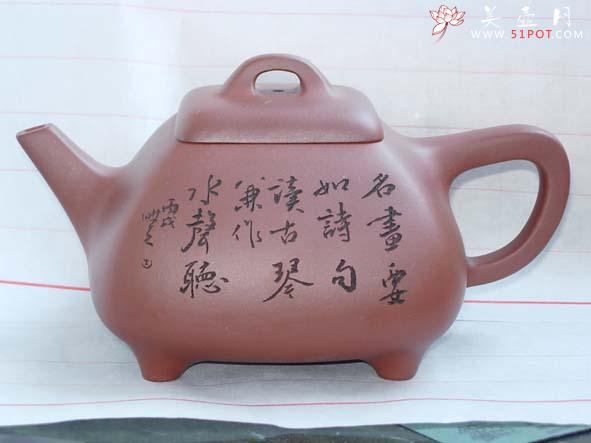 美壶月
www.51POT.com
名畫要
如詩句
讀古琴
兼作
水聲聽
丙戌